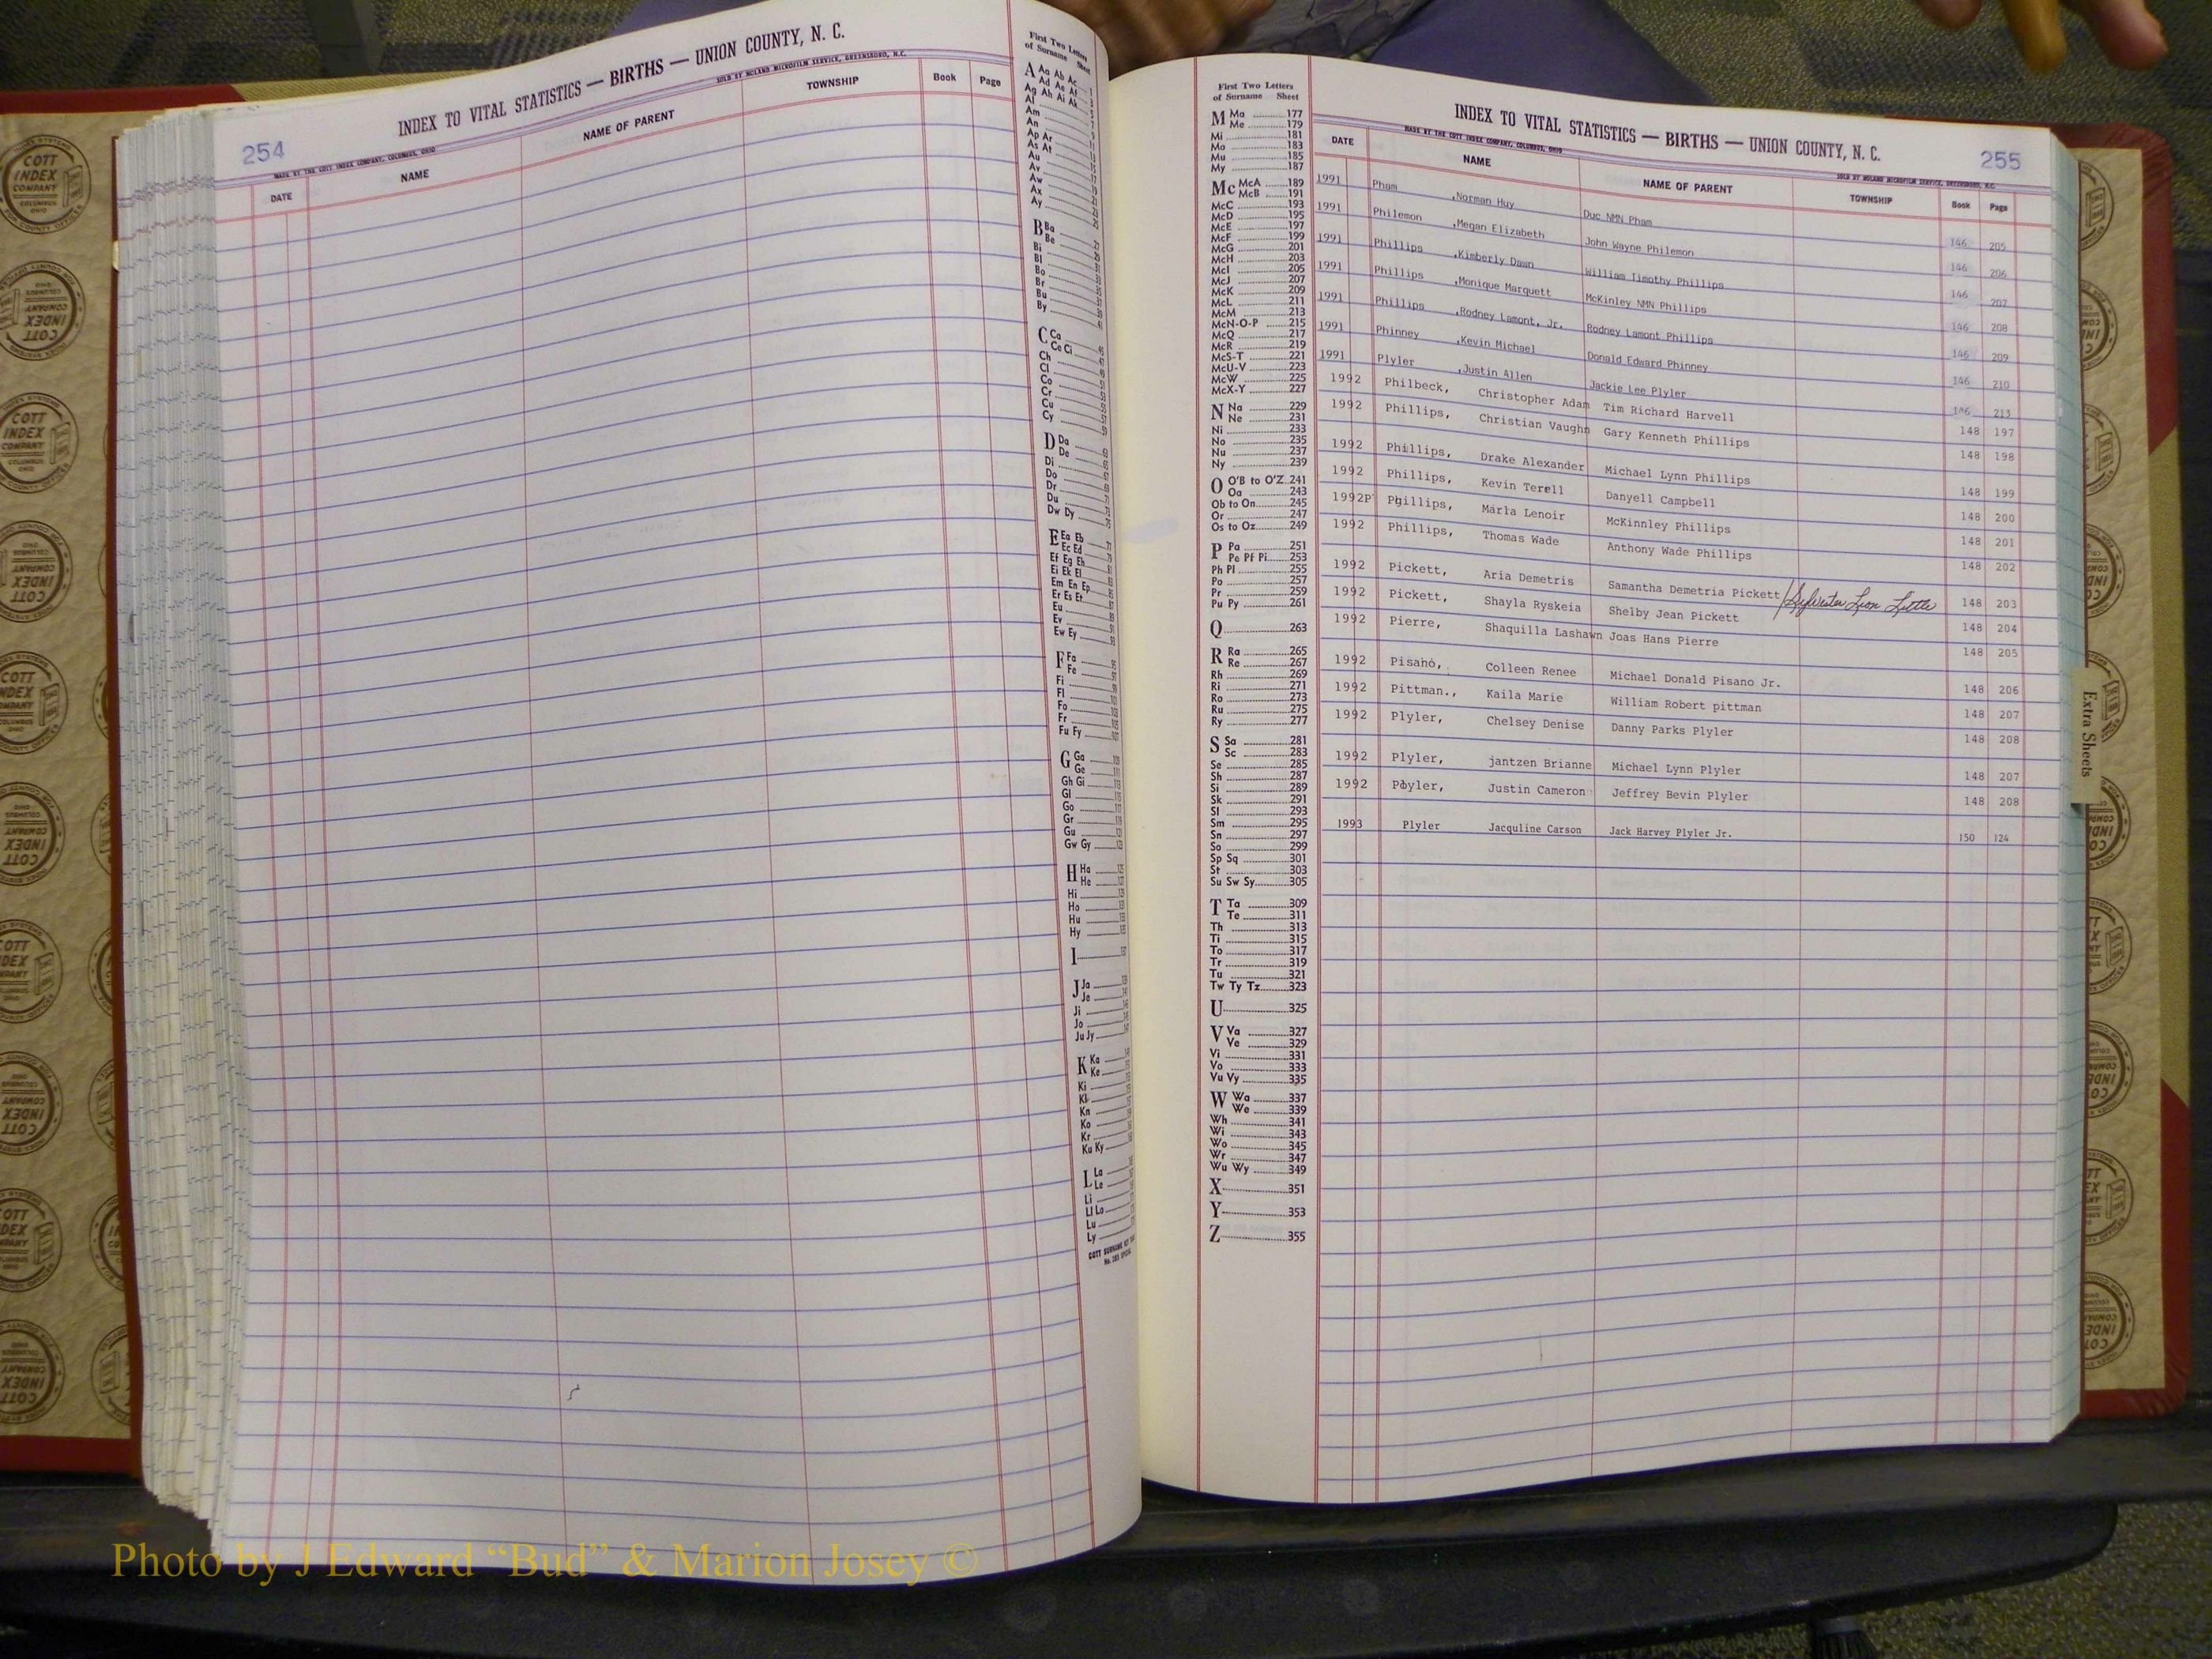 254
INDEX TO VITAL STATISTICS — BIRTHS — UNION COUNTY, N. C.
MADE BY THE COTT INDEX COMPANY, COLUMBUS, OHIO
SOLD BY McLAND MICROFILM SERVICE, GREENSBORO, N.C.
DATE NAME NAME OF PARENT TOWNSHIP Book Page
First Two Letters
of Surname Sheet
A Aa Ab Ac
Ad Ae Af
Ag Ah Ai Ak
Al
Am
An
Ap Ar
As At
Au
Av
Aw
Ax
Ay
B Ba
Be
Bi
Bl
Bo
Br
Bu
By
C Ca
Ce Ci
Ch
Cl
Co
Cr
Cu
Cy
D Da
De
Di
Do
Dr
Du
Dw Dy
E Ea Eb
Ec Ed
Ef Eg Eh
Ei Ek El
Em En Ep
Er Es Et
Eu
Ev
Ew Ey
F Fa
Fe
Fi
Fl
Fo
Fr
Fu Fy
G Ga
Ge
Gh Gi
Gl
Go
Gr
Gu
Gw Gy
H Ha
He
Hi
Ho
Hu
Hy
I
J Ja
Je
Ji
Jo
Ju Jy
K Ka
Ke
Ki
Kl
Kn
Ko
Kr
Ku Ky
L La
Le
Li
Ll Lo
Lu
Ly
First Two Letters
of Surname Sheet
M Ma 177
Me 179
Mi 181
Mo 183
Mu 185
My 187
Mc McA 189
McB 191
McC 193
McD 195
McE 197
McF 199
McG 201
McH 203
McI 205
McJ 207
McK 209
McL 211
McM 213
McN-O-P 215
McQ 217
McR 219
McS-T 221
McU-V 223
McW 225
McX-Y 227
N Na 229
Ne 231
Ni 233
No 235
Nu 237
Ny 239
O O'B to O'Z 241
Oa 243
Ob to On 245
Or 247
Os to Oz 249
P Pa 251
Pe Pf Pi 253
Ph Pl 255
Po 257
Pr 259
Pu Py 261
Q 263
R Ra 265
Re 267
Rh 269
Ri 271
Ro 273
Ru 275
Ry 277
S Sa 281
Sc 283
Se 285
Sh 287
Si 289
Sk 291
Sl 293
Sm 295
Sn 297
So 299
Sp Sq 301
St 303
Su Sw Sy 305
T Ta 309
Te 311
Th 313
Ti 315
To 317
Tr 319
Tu 321
Tw Ty Tz 323
U 325
V Va 327
Ve 329
Vi 331
Vo 333
Vu Vy 335
W Wa 337
We 339
Wh 341
Wi 343
Wo 345
Wr 347
Wu Wy 349
X 351
Y 353
Z 355
INDEX TO VITAL STATISTICS — BIRTHS — UNION COUNTY, N. C.
255
MADE BY THE COTT INDEX COMPANY, COLUMBUS, OHIO
SOLD BY McLAND MICROFILM SERVICE, GREENSBORO, N.C.
DATE NAME NAME OF PARENT TOWNSHIP Book Page
1991 Pham ,Norman Huy Duc NMN Pham 146 205
1991 Philemon ,Megan Elizabeth John Wayne Philemon 146 206
1991 Phillips ,Kimberly Dawn William Timothy Phillips 146 207
1991 Phillips ,Monique Marquett McKinley NMN Phillips 146 208
1991 Phillips ,Rodney Lamont, Jr. Rodney Lamont Phillips 146 209
1991 Phinney ,Kevin Michael Donald Edward Phinney 146 210
1991 Plyler ,Justin Allen Jackie Lee Plyler 146 213
1992 Philbeck, Christopher Adam Tim Richard Harvell 148 197
1992 Phillips, Christian Vaughn Gary Kenneth Phillips 148 198
1992 Phillips, Drake Alexander Michael Lynn Phillips 148 199
1992 Phillips, Kevin Terell Danyell Campbell 148 200
1992P Phillips, Marla Lenoir McKinnley Phillips 148 201
1992 Phillips, Thomas Wade Anthony Wade Phillips 148 202
1992 Pickett, Aria Demetris Samantha Demetria Pickett/Sylvester Leon Little 148 203
1992 Pickett, Shayla Ryskeia Shelby Jean Pickett 148 204
1992 Pierre, Shaquilla Lashawn Joas Hans Pierre 148 205
1992 Pisano, Colleen Renee Michael Donald Pisano Jr. 148 206
1992 Pittman., Kaila Marie William Robert pittman 148 207
1992 Plyler, Chelsey Denise Danny Parks Plyler 148 208
1992 Plyler, jantzen Brianne Michael Lynn Plyler 148 207
1992 Plyler, Justin Cameron Jeffrey Bevin Plyler 148 208
1993 Plyler Jacquline Carson Jack Harvey Plyler Jr. 150 124
Extra Sheets
COTT INDEX COMPANY
Photo by J Edward “Bud” & Marion Josey ©